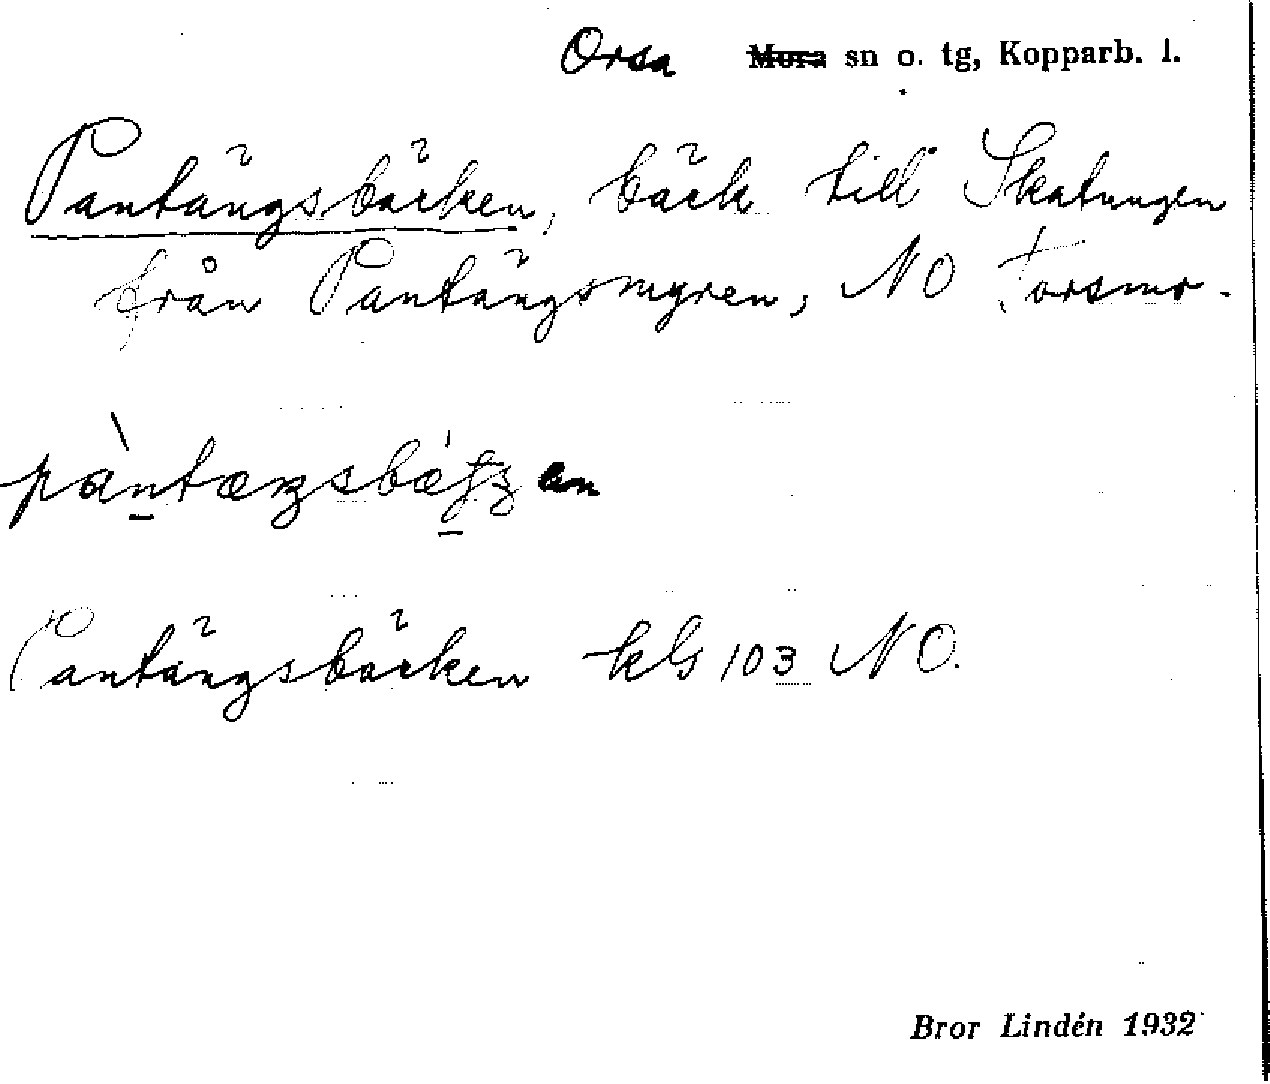 Orsa ~~Mora~~ sn o. tg, Kopparb. l.
Pantängsbäcken, bäck till Skatungen
från Pantängsmyren, NO Torsmo.
Pantängsbäcken kbl 103 NO.
Bror Lindén 1932